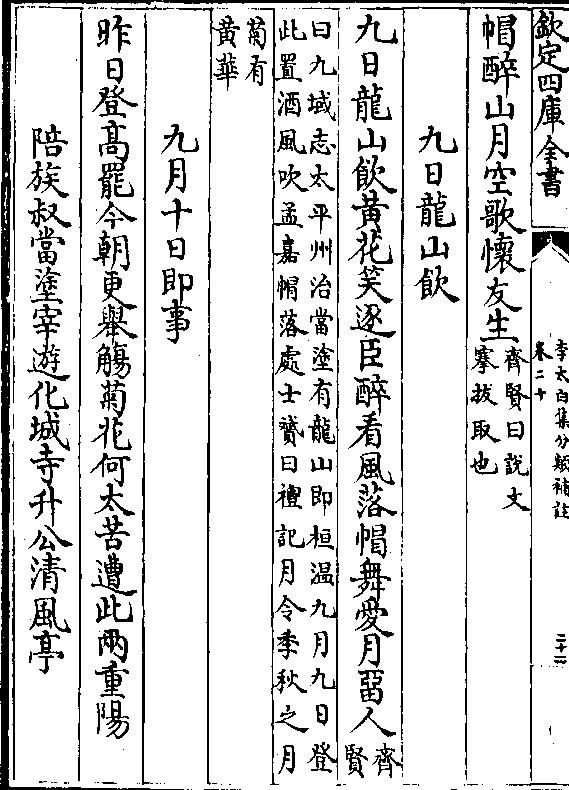 欽定四庫全書
李太白集分類補註
卷二十
二十二
帽醉山月空歌懷友生齊賢曰說文
搴拔取也
九日龍山飲
九日龍山飲黄花笑逐臣醉看風落帽舞愛月留人齊賢
曰九域志太平州治當塗有龍山即桓温九月九日登
此置酒風吹孟嘉帽落處士贇曰禮記月令季秋之月
菊有
黄華
九月十日即事
昨日登髙罷今朝更舉觴菊花何太苦遭此兩重陽
陪族叔當塗宰遊化城寺升公清風亭